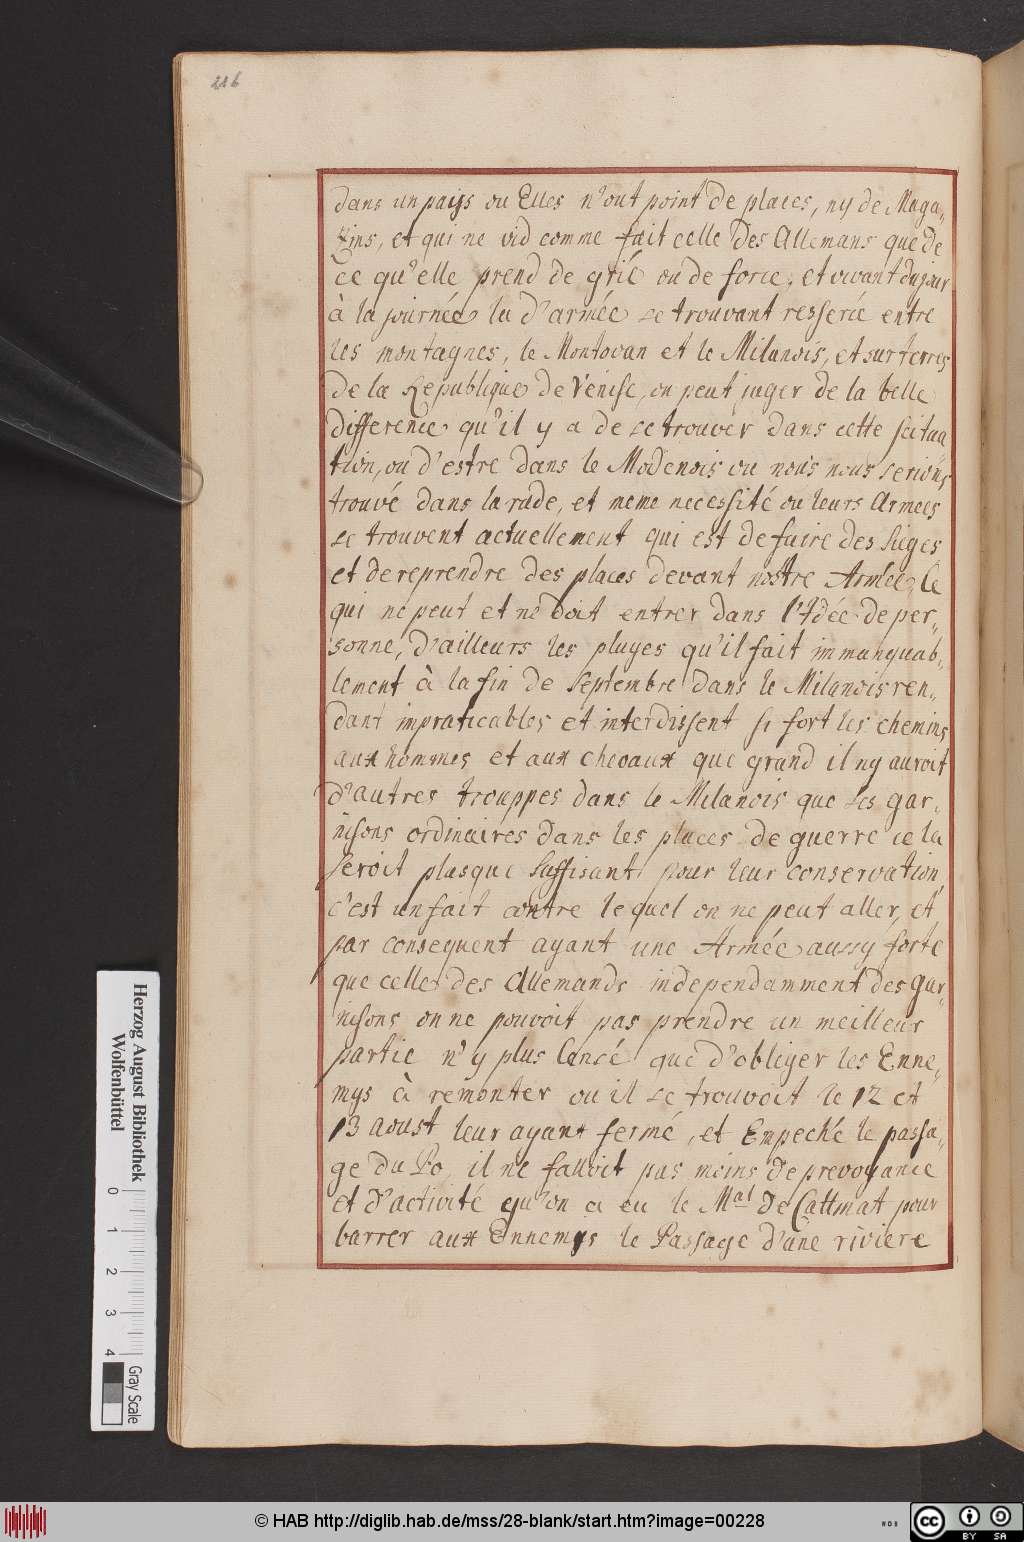 226
dans un paijs ou Elles n'ont point de places, ny de Maga„
Zins, et qui ne vid comme fait celle des Allemans que de
ce qu'elle prend de gré ou de force, et vivant du jour
à la journée la d'armée se trouvant resserée entre
les montagnes, le Montovan et le Milanois, et sur terres
de la Republique de Venise, on peut juger de la belle
difference qu'il y a de se trouver dans cette scitua
tion, ou d'estre dans le Modenois ou nous nous serions
trouvé dans la rade, et meme necessité ou leurs Armees
se trouvent actuellement qui est de faire des sieges
et de reprendre des places devant nostre Armée, le
qui ne peut et ne doit entrer dans l'Idée de per„
sonne, d'ailleurs les pluyes qu'il fait immanquab„
lement à la fin de Septembre dans le Milanois ren„
dant impraticables et interdissent si fort les chemins
aux hommes et aux chevaux que grand il ny auroit
d'autres trouppes dans le Milanois que les gar„
nisons ordinaires dans les places de guerre ce la
seroit plusque suffisant pour leur conservation,
c'est un fait contre lequel on ne peut aller, et
par consequent ayant une Armée aussy forte
que celle des Allemands independamment des gar„
nisons on ne pouvoit pas prendre un meilleur
partie n'y plus sencé que d'obliger les Enne„
mys à remonter ou il se trouvoit le 12 et
13 aoust leur ayant fermé, et Empeché le passa„
ge du Po, il ne falloit pas moins de prevoyance
et d'activité qu'on a eu le Mal de Cattinat pour
barrer aux Ennemys le Passage d'une riviere
Herzog August Bibliothek
Wolfenbüttel
0 1 2 3 4
Gray Scale
© HAB http://diglib.hab.de/mss/28-blank/start.htm?image=00228
WDB
CC BY SA